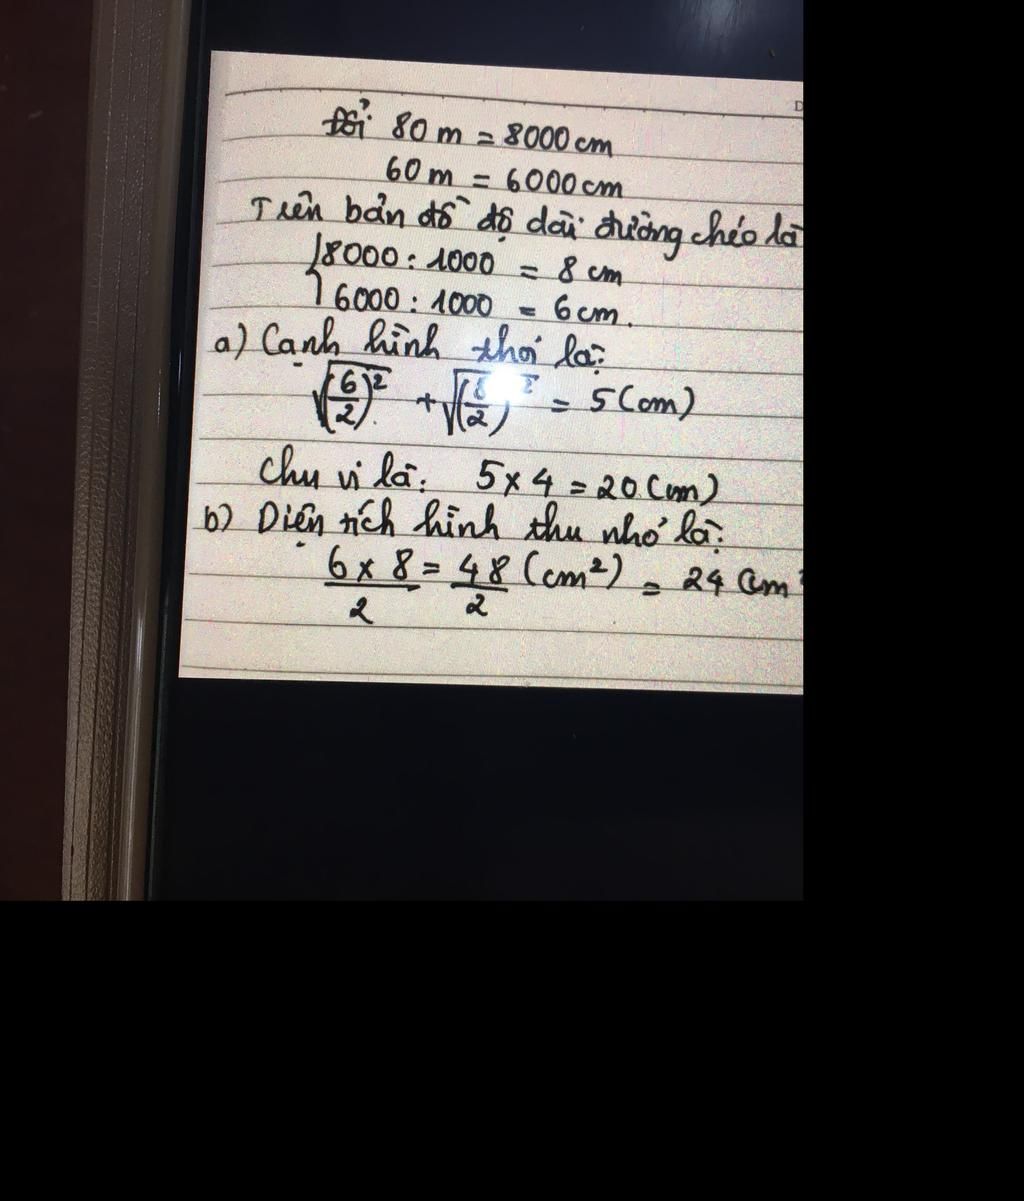 Đổi 80 m = 8000 cm
60 m = 6000 cm
Trên bản đồ độ dài đường chéo là
8000 : 1000 = 8 cm
6000 : 1000 = 6 cm.
a) Cạnh hình thoi là:
√(6/2)² + √(8/2)² = 5 (cm)
Chu vi là: 5 x 4 = 20 (cm)
b) Diện tích hình thu nhỏ là:
6 x 8 / 2 = 48 / 2 (cm²) = 24 cm²